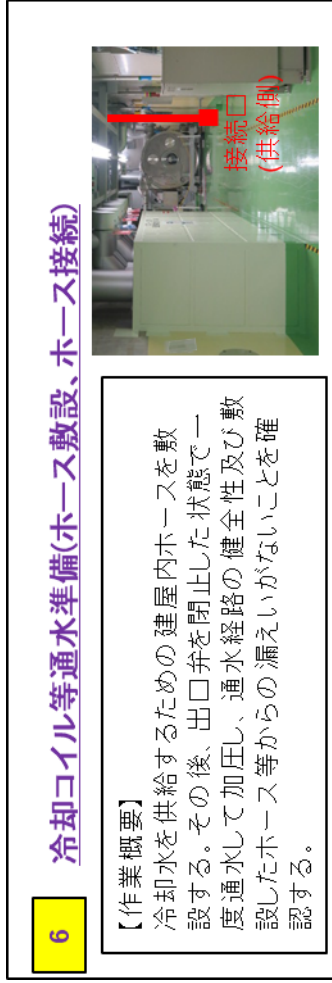 6
冷却コイル等通水準備(ホース敷設、ホース接続)
【作業概要】
冷却水を供給するための建屋内ホースを敷
設する。その後、出口弁を閉止した状態で一
度通水して加圧し、通水経路の健全性及び敷
設したホース等からの漏えいがないことを確
認する。
接続口
(供給側)